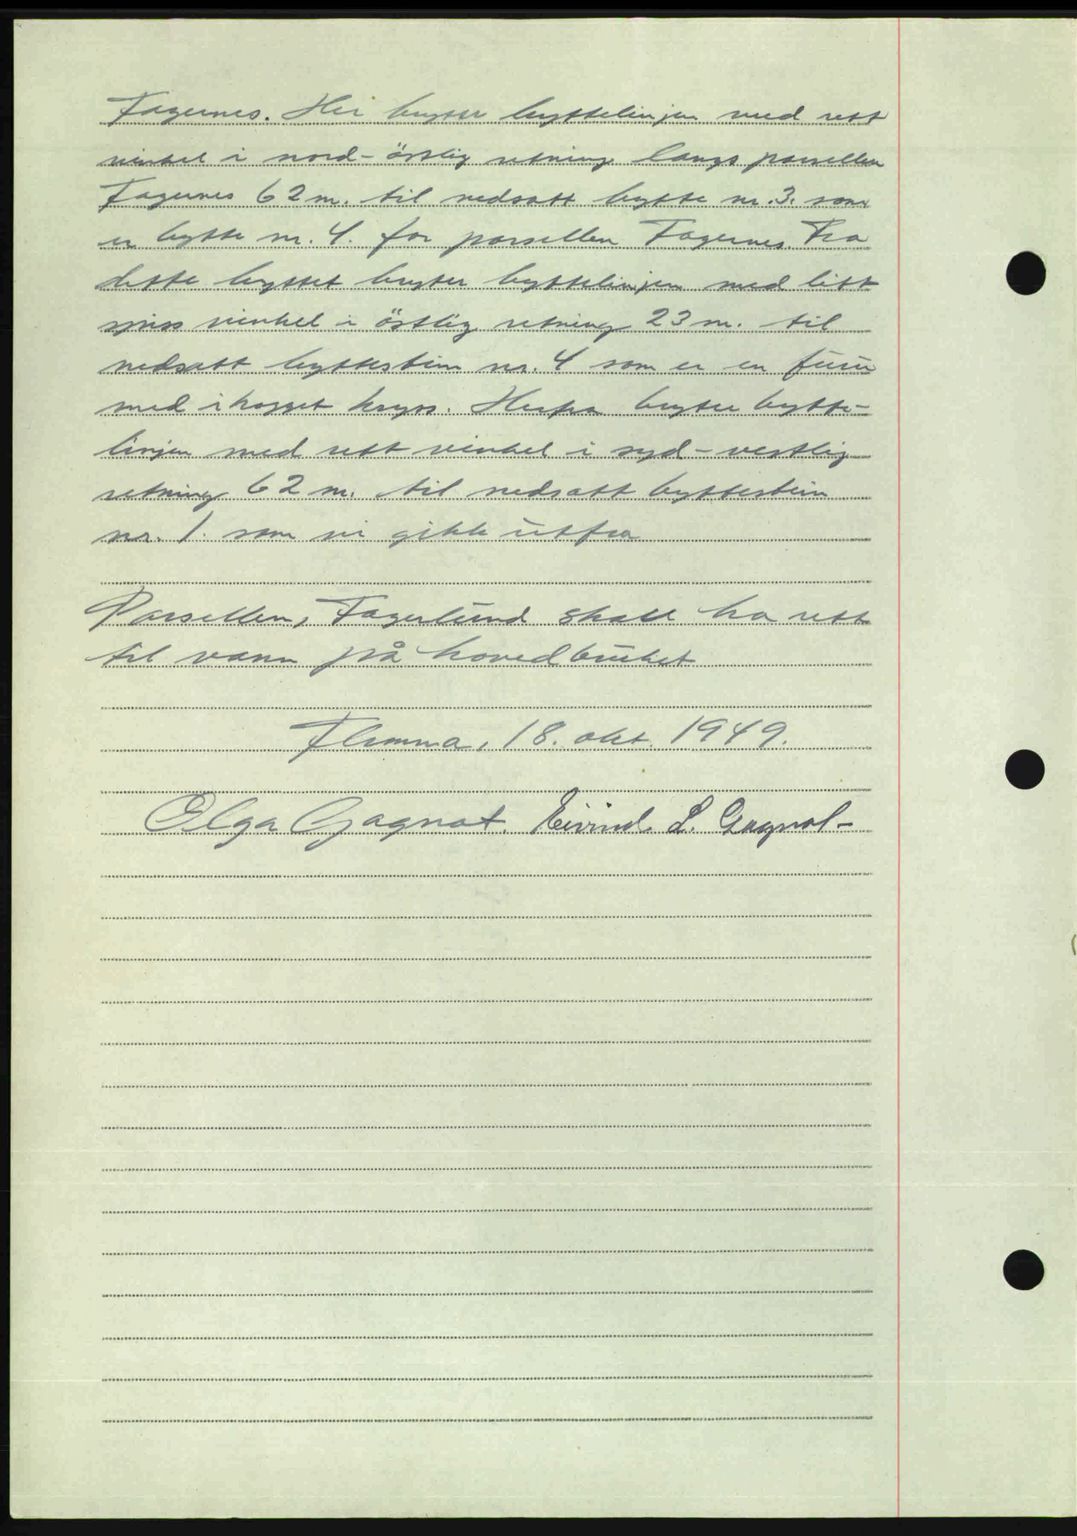 Fagernes. Her bryter byttelinjen med rett
vinkel i nord-östlig retning langs parsellen
Fagernes 62 m. til nedsatt bytte nr. 3. som
er bytte nr. 4. for parsellen Fagernes. Fra
dette byttet bryter byttelinjen med litt
spiss vinkel i östlig retning 23 m. til
nedsatt byttestein nr. 4 som er en furu
med ihogget kryss. Herfra bryter bytte-
linjen med rett vinkel i syd-vestlig
retning 62 m. til nedsatt byttestein
nr. 1. som vi gikk utfra
Parsellen, Fagerlund skall ha rett
til vann på hovedbruket
Flemma, 18. okt. 1949.
Olga Gagnat. Eivind L. Gagnat-